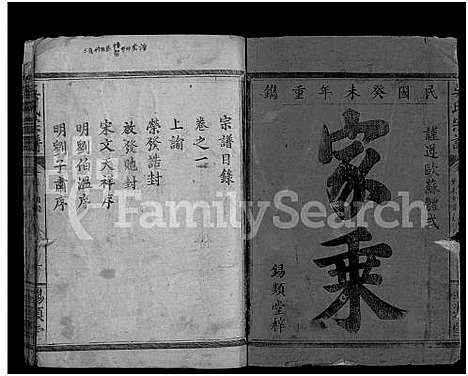 民國癸未年重鐫
謹遵歐蘇體式
家乘
錫類堂梓
宗譜目錄
卷之一
上諭
榮發誥封
敕發貤封
宋文天祥序
明劉伯溫序
明劉子肅序
FamilySearch